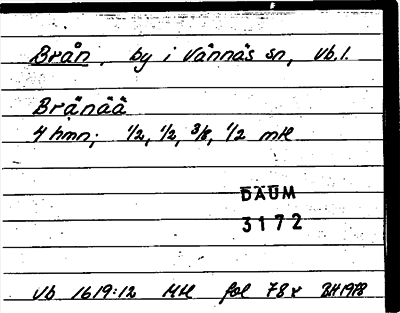 Brån. by i Vännäs sn, Vb.l.
Brånåå
4 hmn; 1/2, 1/2, 3/8, 1/2 mtl
DAUM
3172
Vb 1619:12 Mtl fol 78r BH 1978